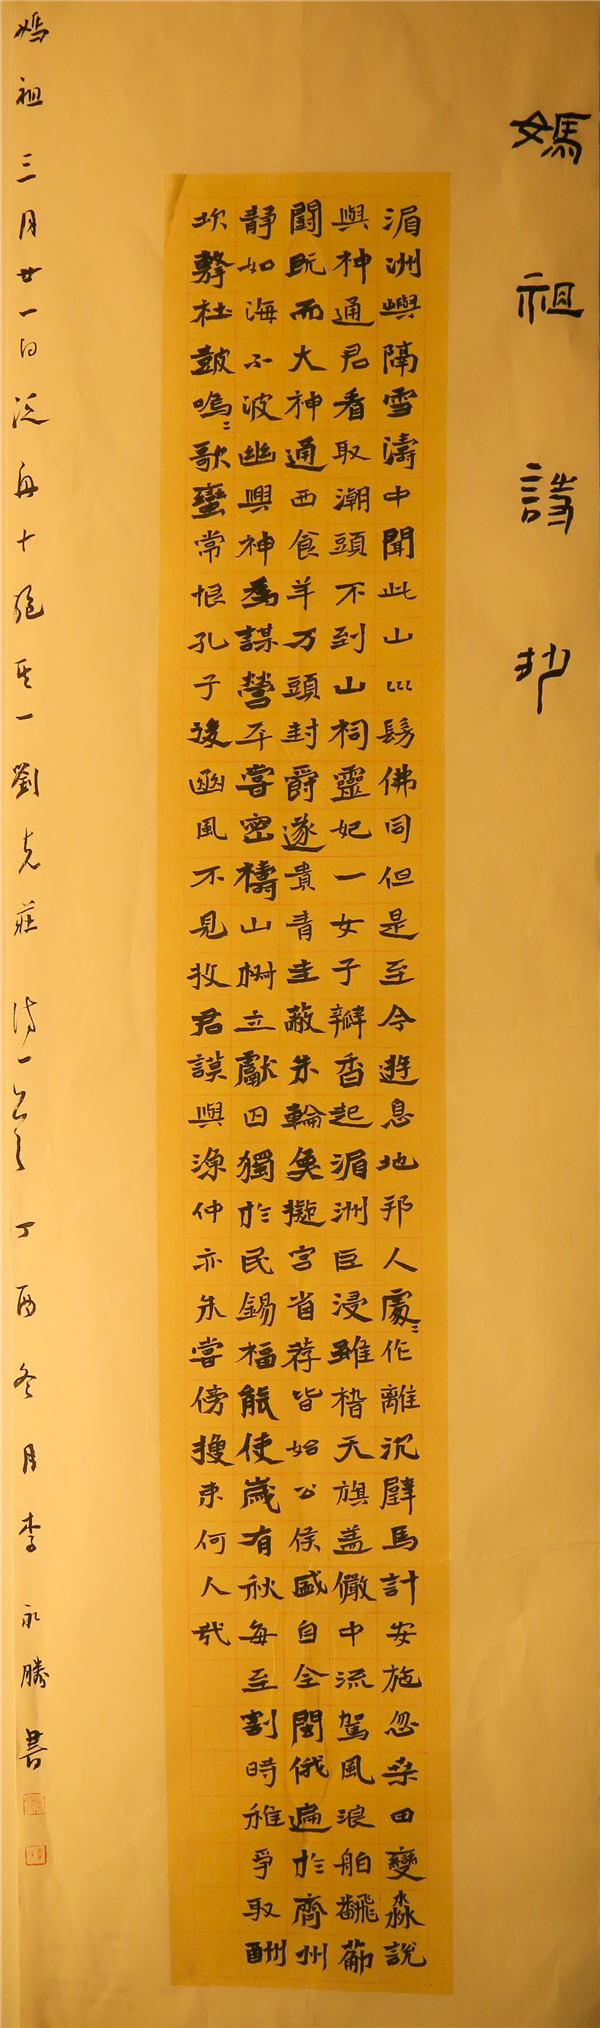 媽祖詩抄
湄洲嶼隔雪濤中聞此山以髣佛同但是至今遊息地邦人處〻作離沉璧馬計安施忽桑田變淼說
與神通君看取潮頭不到山祠靈妃一女子瓣香起湄洲巨浸雖稽天旗蓋儼中流駕風浪舶翻葡
鬪既而大神通西食羊万頭封爵遂貴青圭蔽朱輪奐擬宮省荐皆始公侯盛自全閩俄遍於齊州
靜如海不波幽興神為謀營平嘗密禱山樹立獻囚獨於民錫福能使歲有秋每至割時稚爭取酬
坎擊社鼓嗚〻歌蠻常恨孔子後豳風不見收君謨與漁仲亦朱嘗傍搜束何人哉
媽祖三月廿一日泛舟十絕其一劉克莊詩一丁酉冬月李永勝書